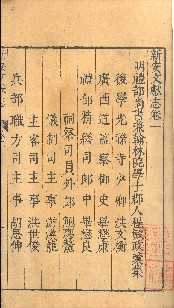 新安文獻志卷一
明禮部尚書兼翰林院學士郡人程敏政彙集
後學光祿寺少卿洪文衡
廣西道監察御史畢懋康
禮部精膳司郎中畢懋良
祠祭司員外郎鮑應鰲
儀制司主事游漢龍
主客司主事洪世俊
兵部職方司主事胡思伸